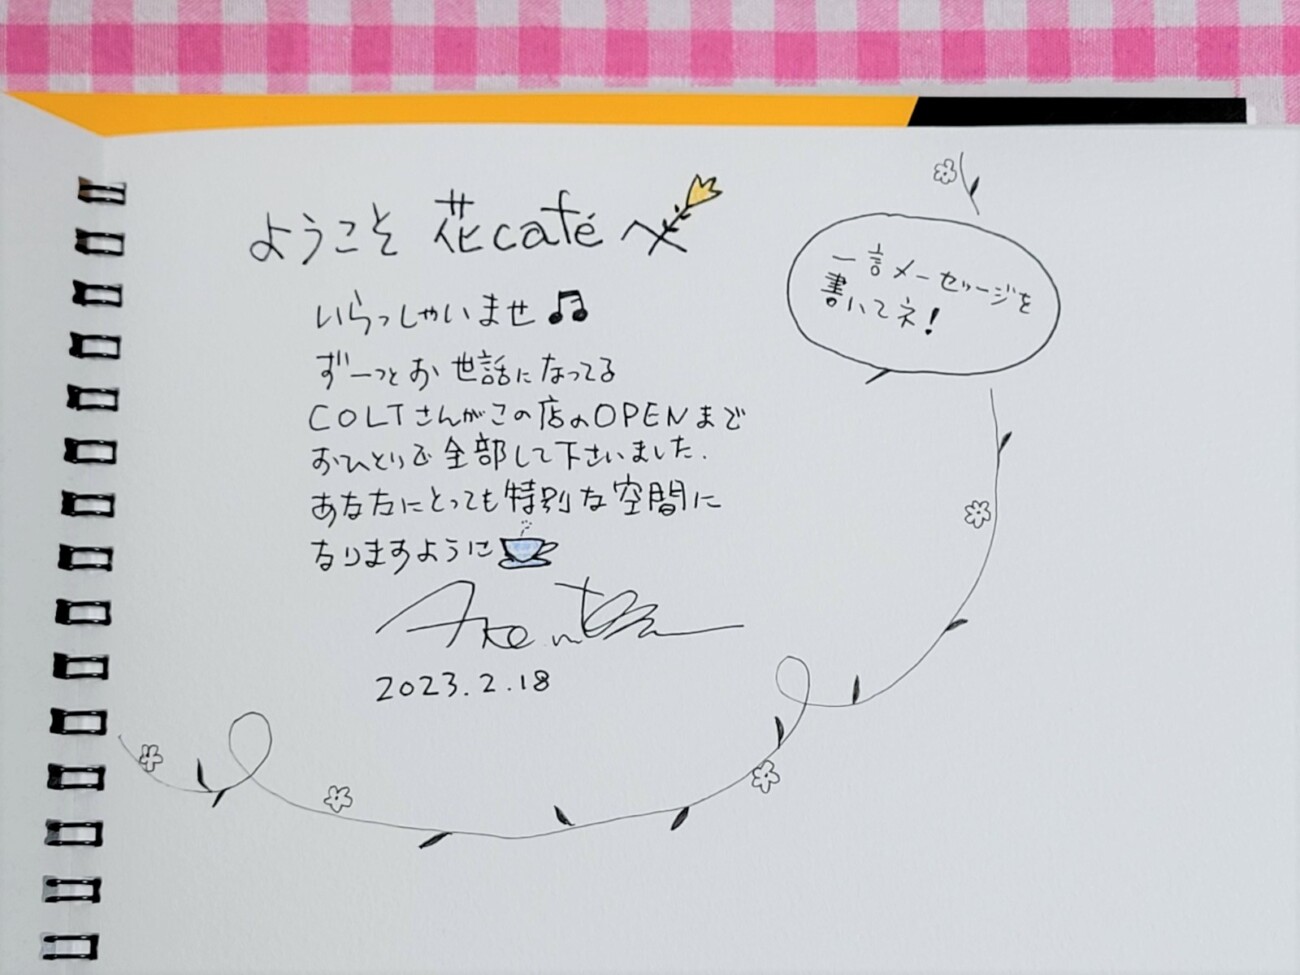 ようこそ 花caféへ
いらっしゃいませ♫
ずーっとお世話になってる
COLTさんがこの店のOPENまで
おひとりで全部して下さいました.
あなたにとっても特別な空間に
なりますように
2023.2.18
一言メーセッージを
書いてネ!